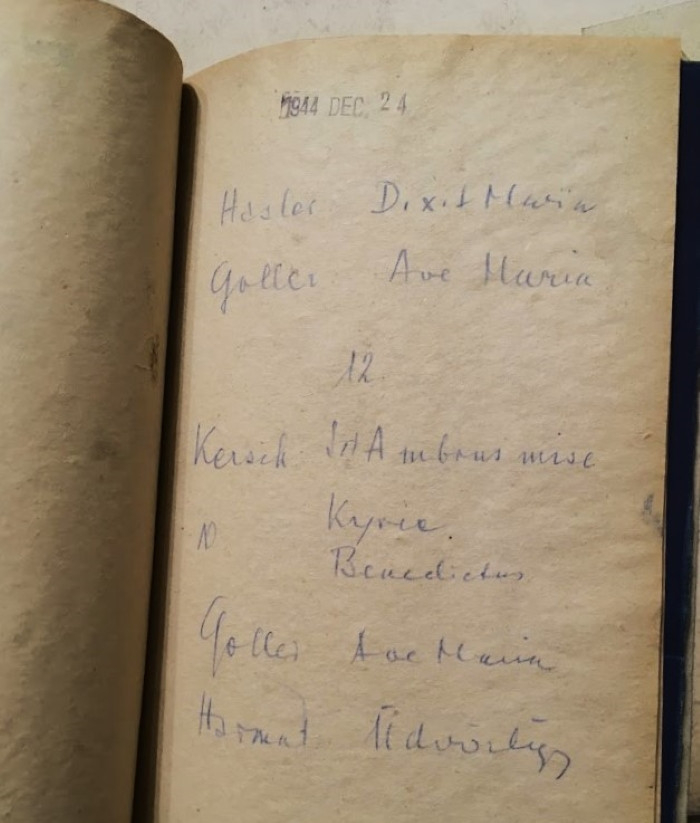 1944 DEC. 24
Hasler Dixit Maria
Goller Ave Maria
12
Kersch Szt Ambrus mise
Kyrie
Benedictus
Goller Ave Maria
Harmat Üdvözlégy